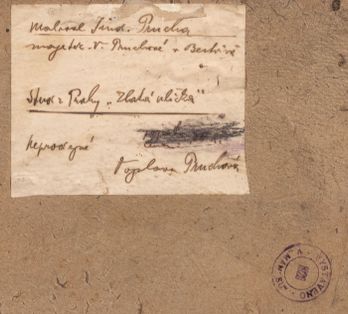 Maloval Jind. Prucha
majetek V. Pruchové v Berlíně
Stud z Prahy „Zlatá ulička“
Neprodejné
Pruchová
VYSTAVENO · V